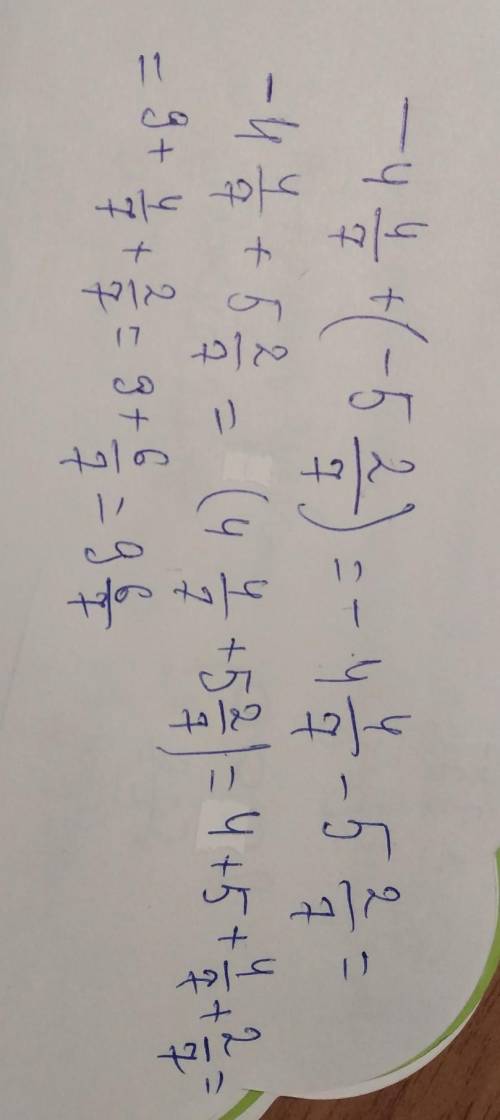 -4 4/7 + (-5 2/7) = -4 4/7 - 5 2/7 =
-4 4/7 + 5 2/7 = (4 4/7 + 5 2/7) = 4 + 5 + 4/7 + 2/7 =
= 9 + 4/7 + 2/7 = 9 + 6/7 = 9 6/7